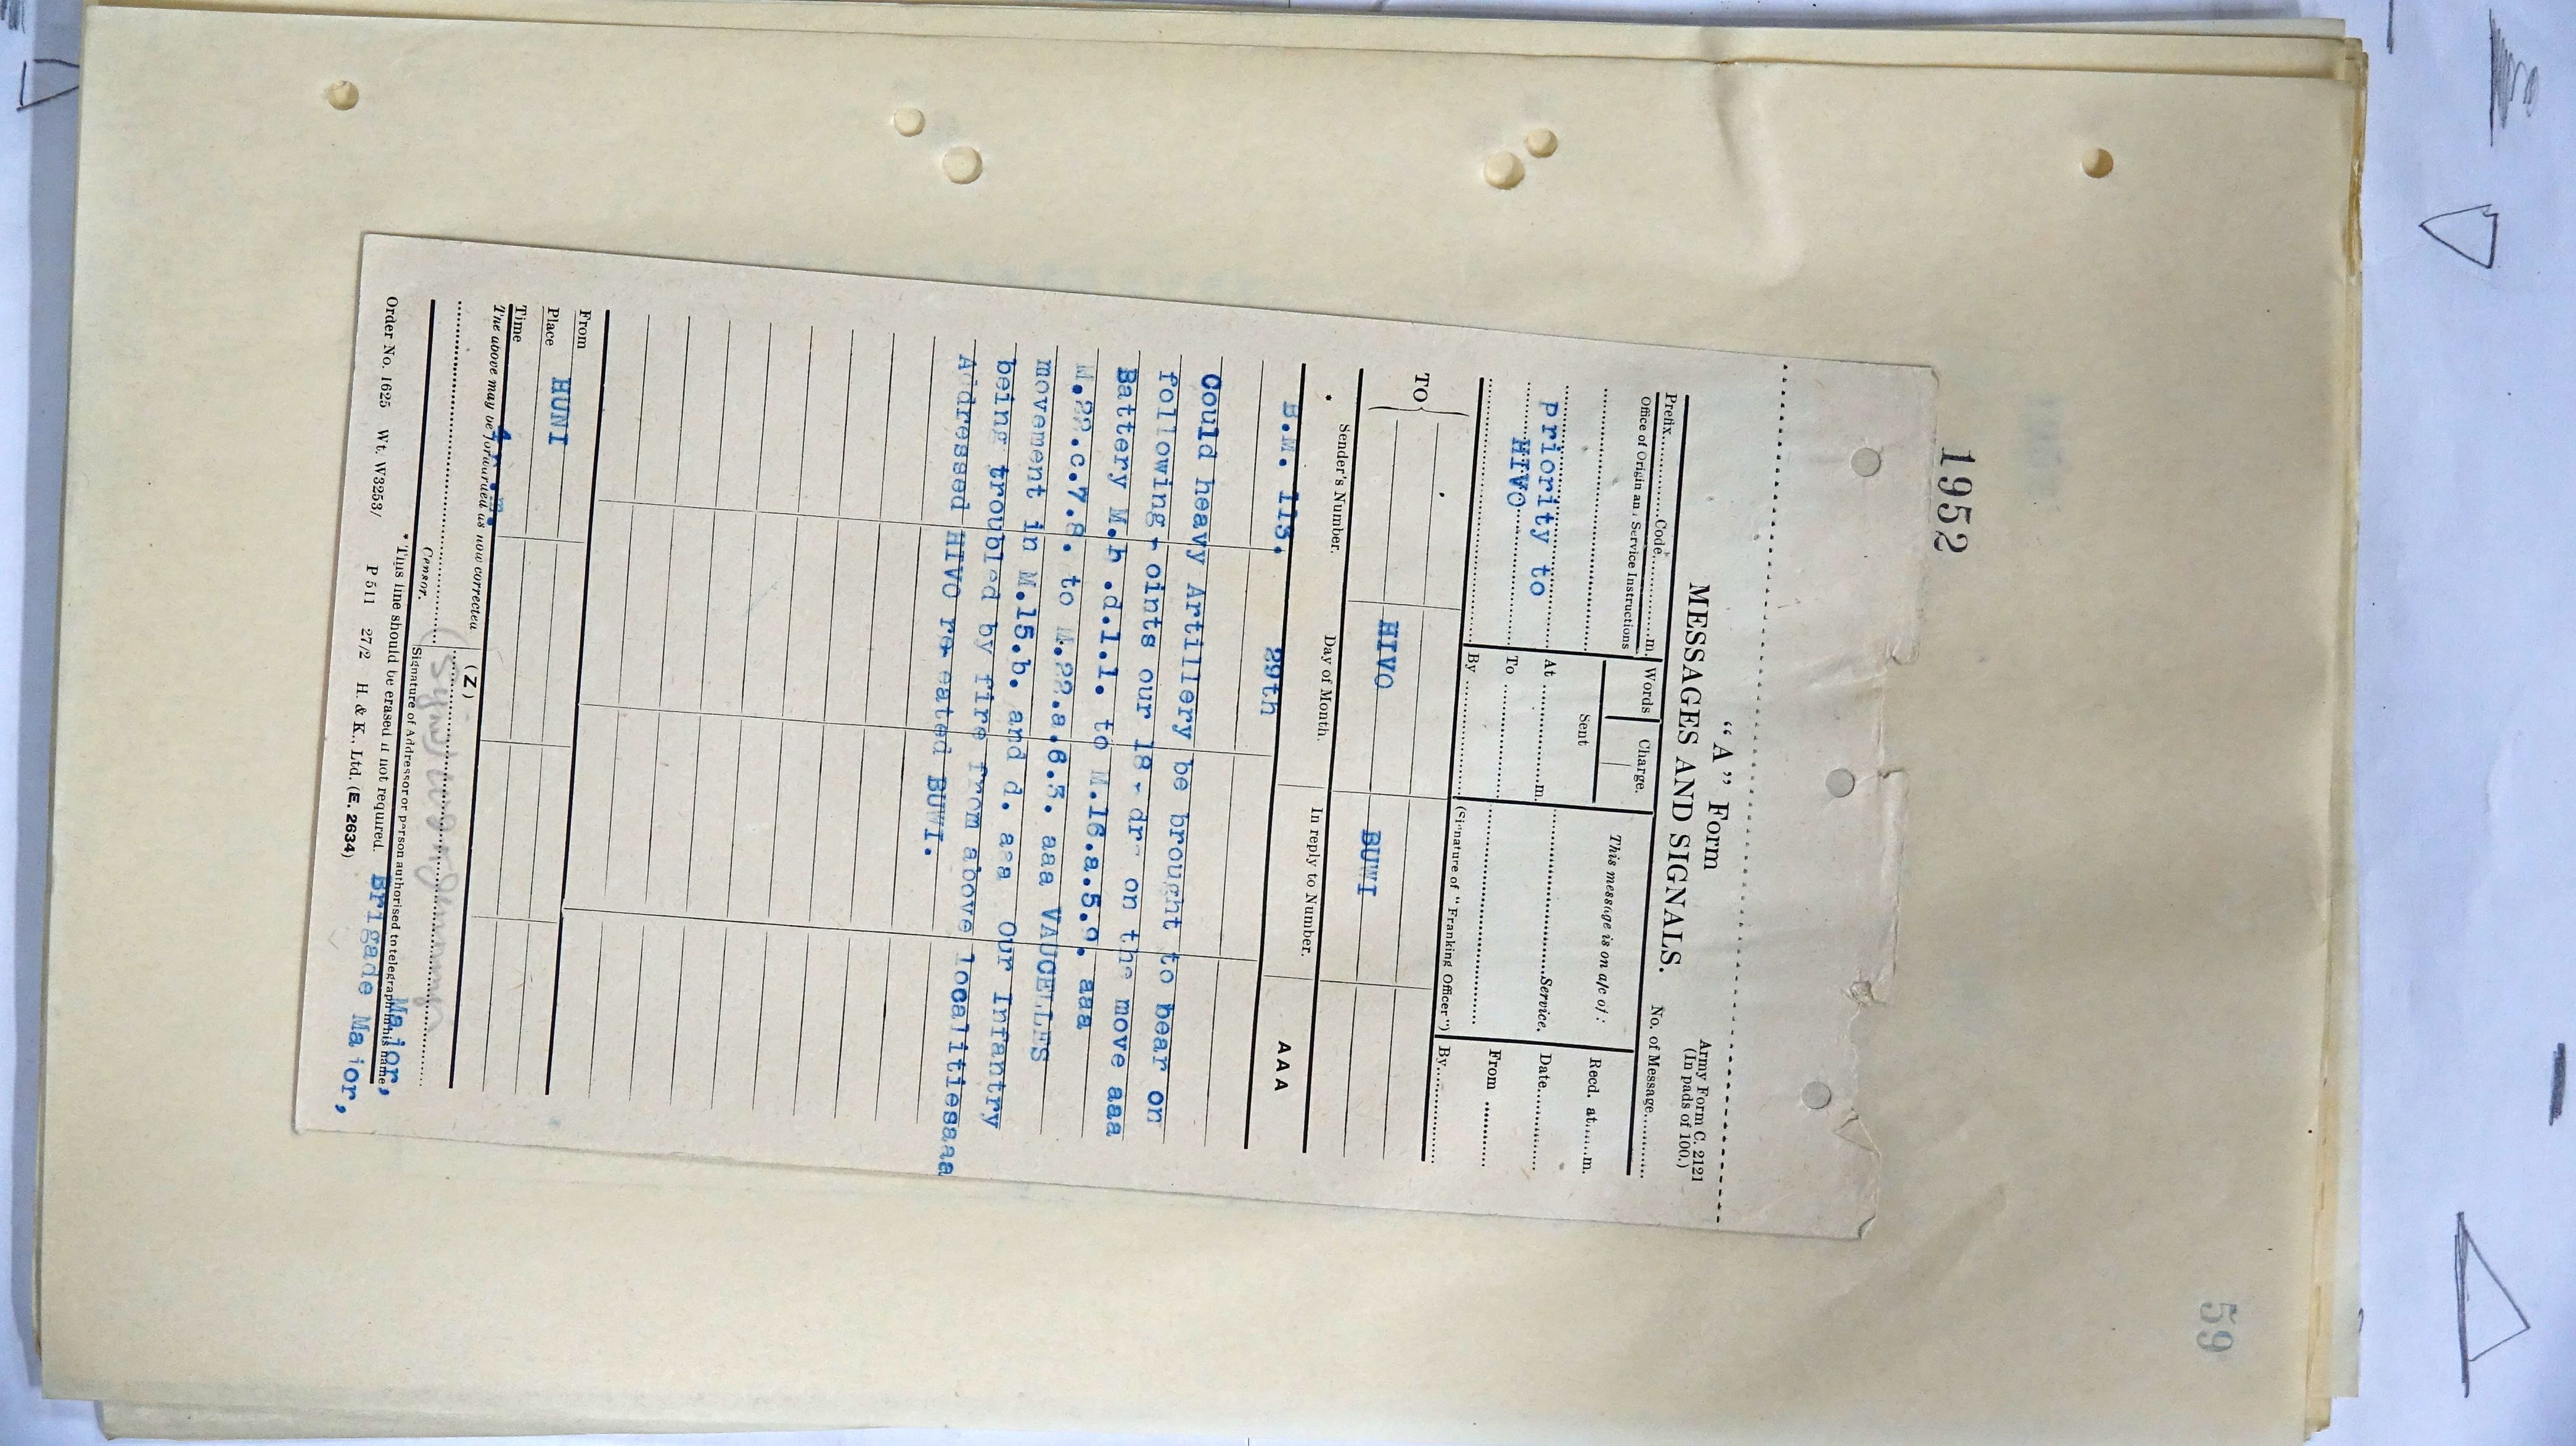 1952
59
"A" Form
Army Form C. 2121
(In pads of 100.)
MESSAGES AND SIGNALS.
No. of Message............
Prefix............Code............m.
Office of Origin and Service Instructions
Words
Charge.
Sent
This message is on a/c of :
Recd. at......m.
Priority to
HIVO
At ............m.
To ............
By ............
............Service.
Date............
From ............
(Signature of "Franking Officer")
By............
TO
HIVO
BUWI
Sender's Number.
Day of Month.
In reply to Number.
AAA
B.M. 113.
29th
Could heavy Artillery be brought to bear on
following - oints our 18 - dr on the move aaa
Battery M. .d.1.1. to M.16.a.5.9. aaa
M.22.c.7.8. to M.22.a.6.3. aaa VAUCELLES
movement in M.15.b. and d. aaa Our Infantry
being troubled by fire from above localitiesaaa
Addressed HIVO re eated BUWI.
From
Place
HUNI
Time
The above may be forwarded as now corrected
(Z)
Censor.
Signature of Addressor or person authorised to telegraph in his name
Major,
* This line should be erased if not required.
Brigade Major,
Order No. 1625 Wt. W3253/ P 511 27/2 H. & K., Ltd. (E. 2634)